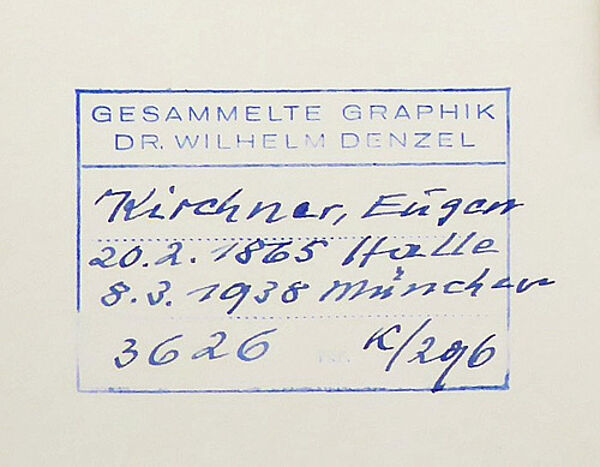 GESAMMELTE GRAPHIK
DR. WILHELM DENZEL
Kirchner, Eugen
20.2.1865 Halle
8.3.1938 München
3626 K/296